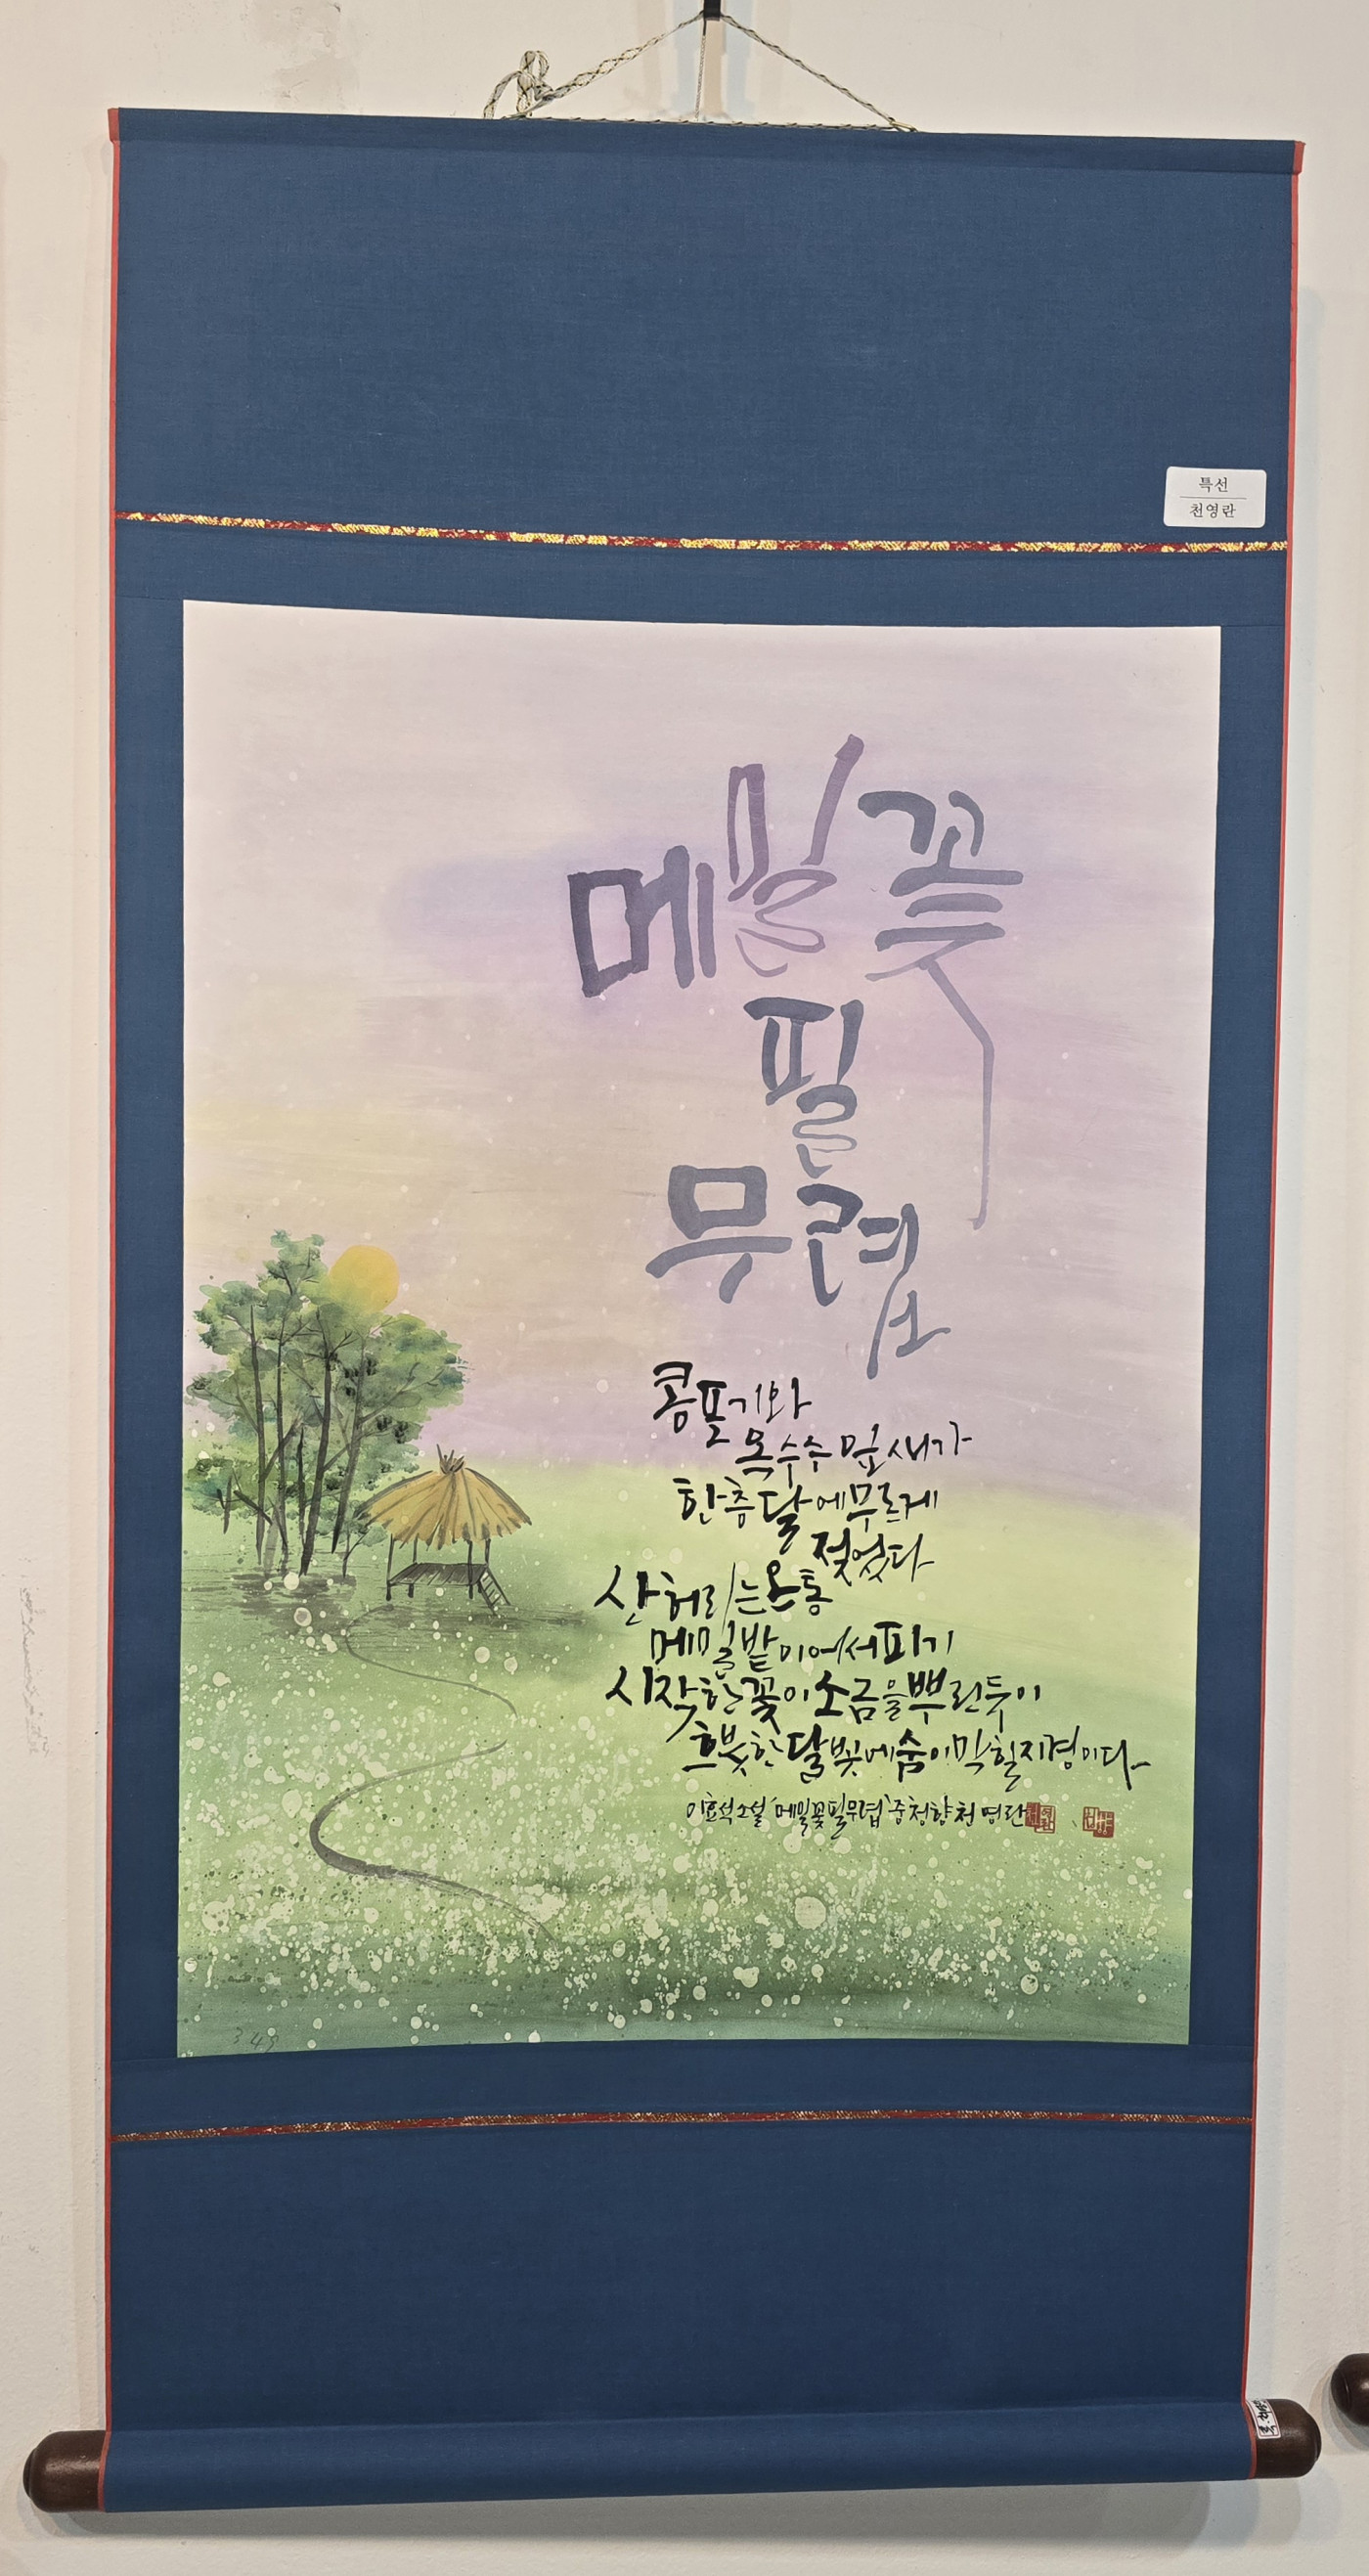 특선
천영란
메밀꽃
필
무렵
콩포기와
옥수수 잎새가
한층 달에 푸르게
젖었다
산허리는 온통
메밀밭이어서 피기
시작한 꽃이 소금을 뿌린듯이
흐붓한 달빛에 숨이 막힐 지경이다
이효석 소설 '메밀꽃 필 무렵' 중 청향 천영란
349